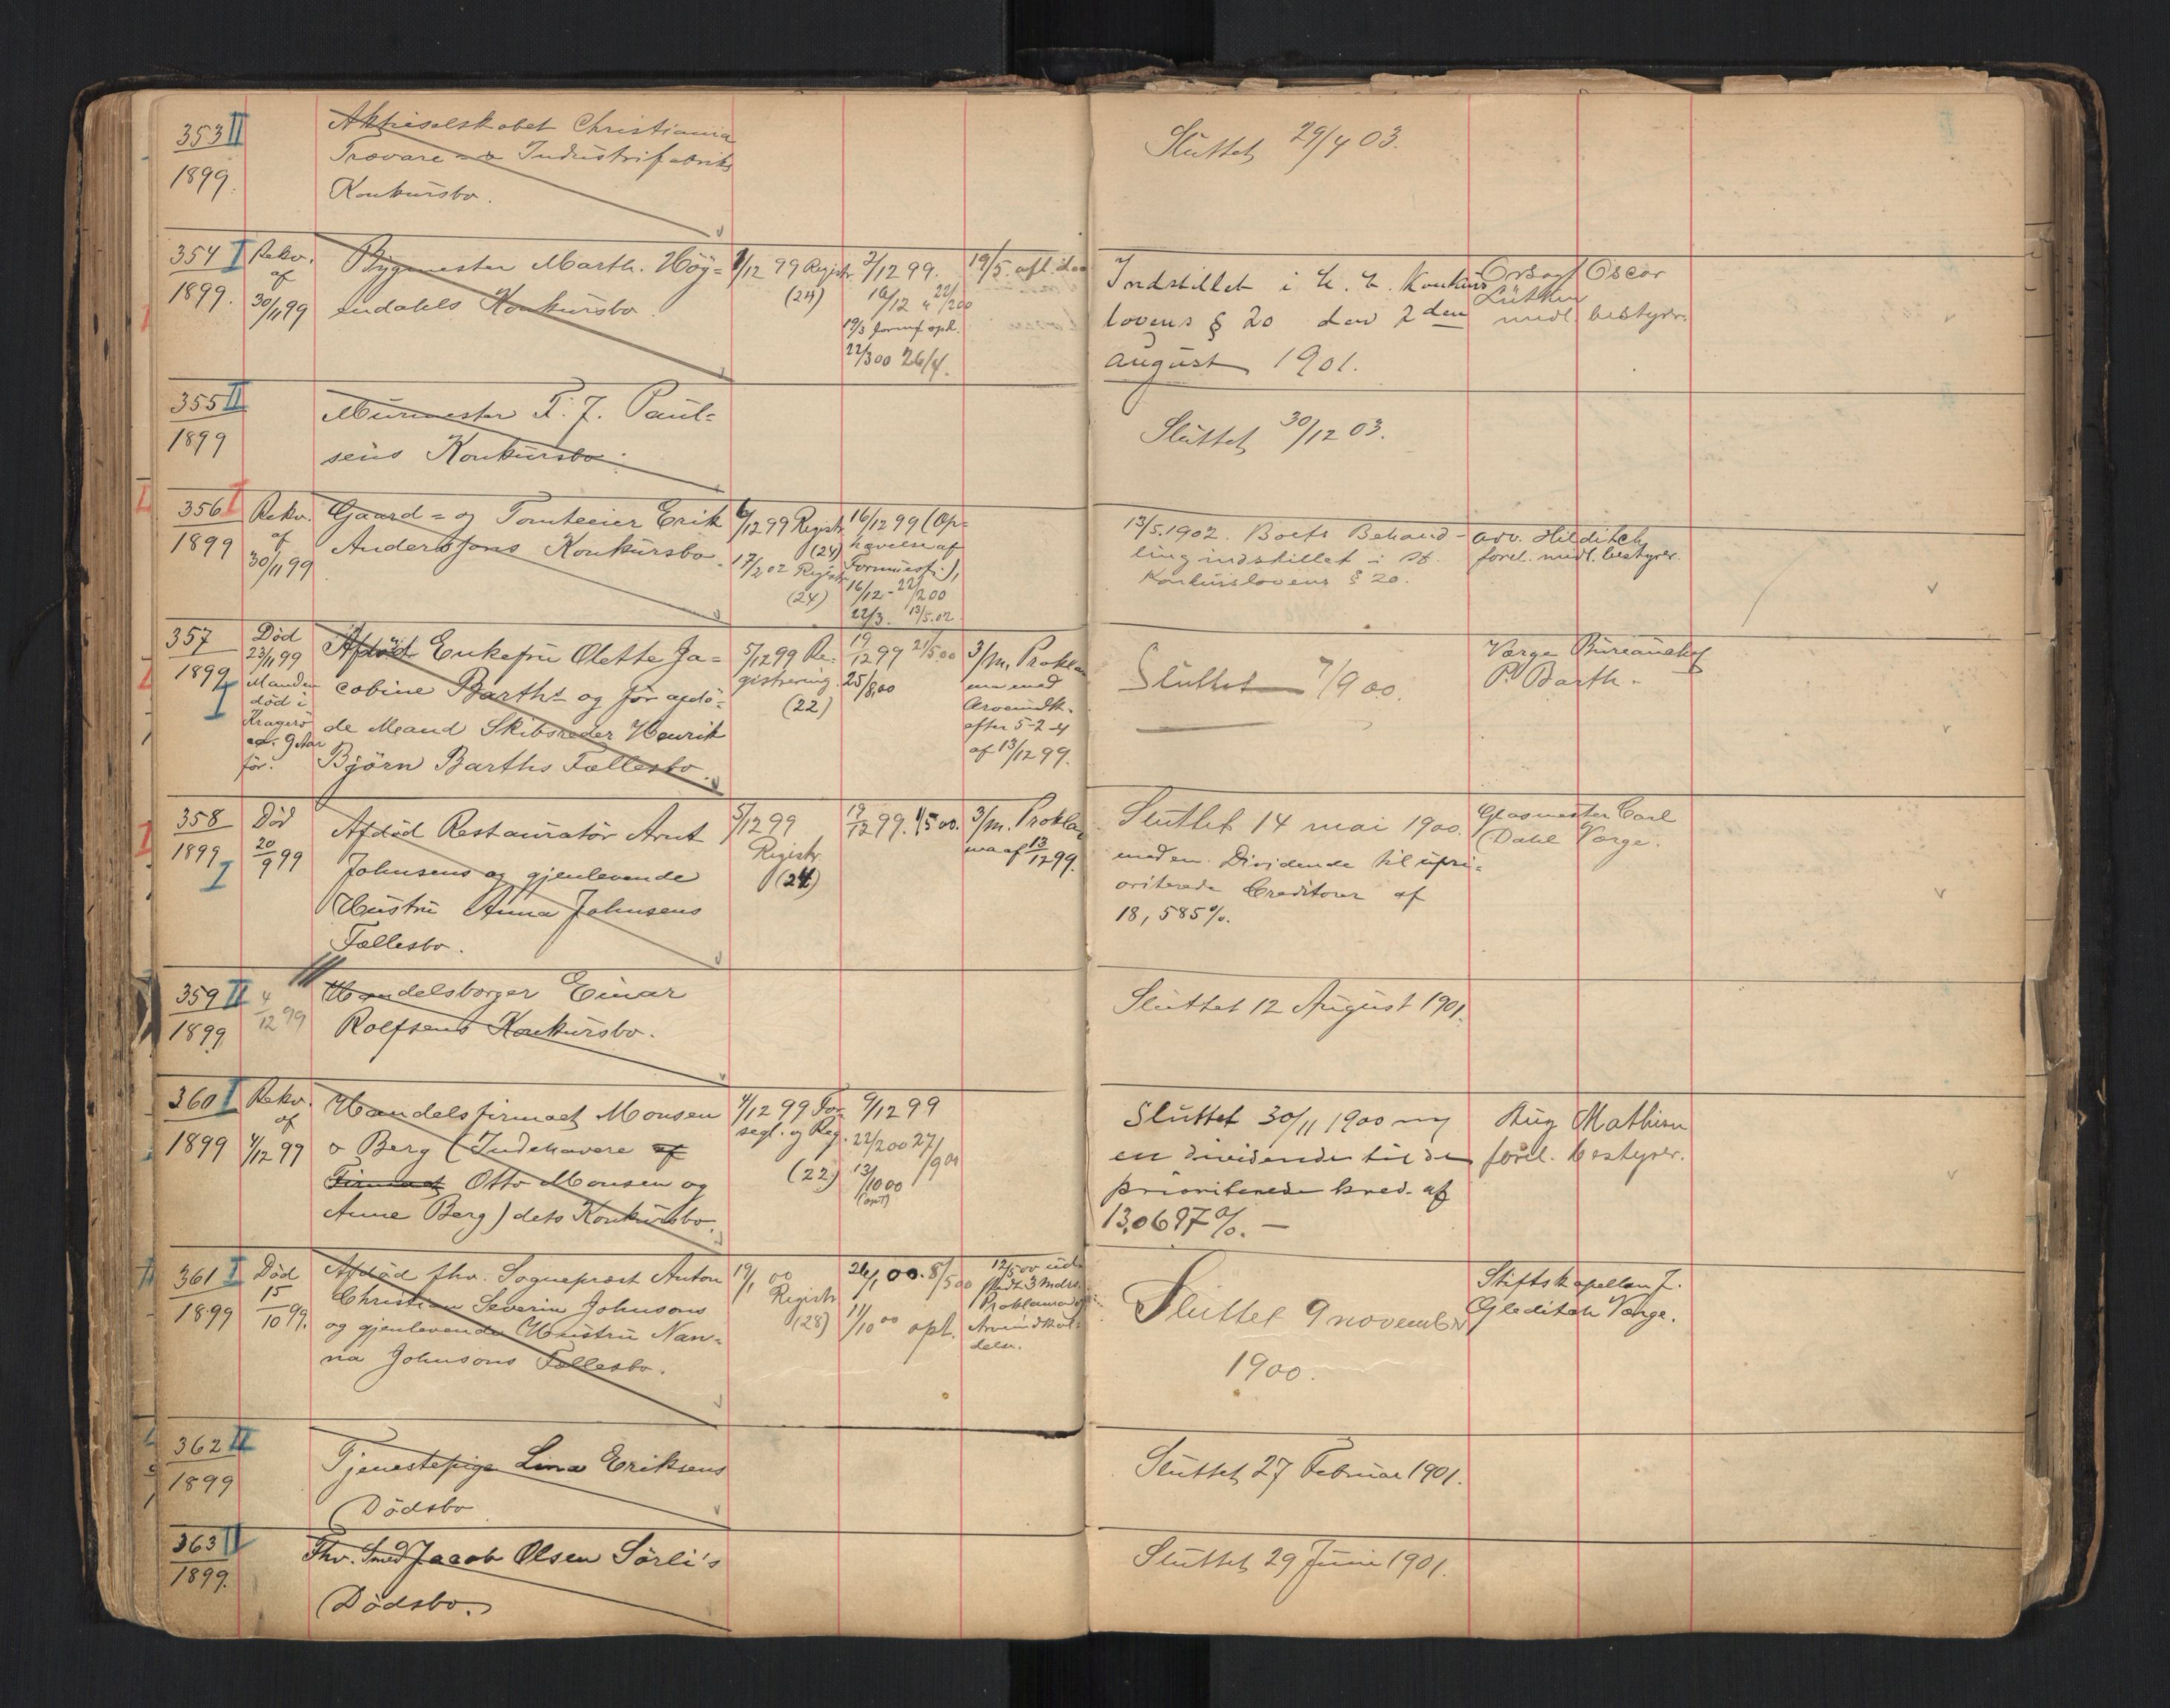 353 II
1899.
Aktieselskabet Christiania
Trævare- o Industrifabriks
Konkursbo.
Sluttet 29/4 03.
354 I
1899.
Rekv.
af
30/11 99
Bygmester Marth. Höy=
endahls Konkursbo.
1/12 99 Registr.
(24)
2/12 99.
16/12 " 22/2 00
19/3 formf opt.
22/3 00 26/4.
19/5. afl.
Indstillet i H. t. Konkurs
lovens § 20 den 2den
august 1901.
Orsagf Oscar
Lütken
midl. bestyrer.
355 II
1899
Murmester F. J. Paul=
sens Konkursbo.
Sluttet 30/12 03.
356 I
1899
Rekv.
af
30/11 99
Gaard= og Tomteeier Erik
Anderssons Konkursbo.
6/12 99 Registr.
(24)
17/2 02 Registr
(24)
16/12 99 (Op=
hævelse af
Formuesfr.),
16/12 - 22/2 00
22/3. 13/5.02
13/5.1902. Boets Behand-
ling indstillet i H.
Konkurslovens § 20.
adv. Hilditch
forel. midl. bestyrer.
357
1899
I
Død
23/11 99
Manden
död i
Kragerö
ca. 9 Aar
för.
Afdöd Enkefru Olette Ja=
cobine Barths og för afdö=
de Mand Skibsreder Henrik
Björn Barths Fællesbo.
5/12 99 Re=
gistrering.
(22)
19/12 99 21/5 00
25/8 00
3/m. Prokla
ma med
Arveindk.
efter 5-2-4
af 13/12 99.
Sluttet 7/9 00.
Værge Bureauchef
P. Barth.
358
1899
I
Död
20/9 99
Afdöd Restauratör Arnt
Johnsens og gjenlevende
Hustru Anna Johnsens
Fællesbo.
5/12 99
Registr.
(24)
19/12 99. 1/5 00.
3/m. Prokla
ma af 13/12 99.
Sluttet 14 mai 1900.
med en Dividende til upri=
oriterede Creditorer af
18,585%.
Glasmester Carl
Dahl Værge.
359 II
1899
4/12 99
Handelsborger Einar
Rolfsens Konkursbo.
Sluttet 12 August 1901.
360 I
1899
Rekv.
af
4/12 99
Handelsfirmaet Monsen
o Berg (Indehavere af
Firmaet Otto Monsen og
Anne Berg) dets Konkursbo.
4/12 99 For
segl. og Reg.
(22)
9/12 99
22/2 00 27/
13/10 00
(opt)
Sluttet 30/11 1900 m
en dividende til de
prioriterede kred. af
13,0697%. —
Aug Mathisen
forel. bestyrer.
361 I
1899
Död
15/10 99.
Afdöd fhv. Sogneprest Anton
Christian Severin Johnsons
og gjenlevende Hustru Nan=
na Johnsons Fællesbo.
19/1 00
Registr
(28)
26/1 00. 8/5 00
11/10 00 opt.
12/5 00 ud
stedt 3 mdrs.
Proklama og
Arveindkal=
delse.
Sluttet 9 november
1900.
Stiftskapellan J.
Gleditsch Værge.
362 II
1899
Tjenestepige Lina Eriksens
Dödsbo
Sluttet 27 Februar 1901.
363 II
1899.
Fhv. Smed Jacob Olsen Sörli's
Dödsbo.
Sluttet 29 Juni 1901.